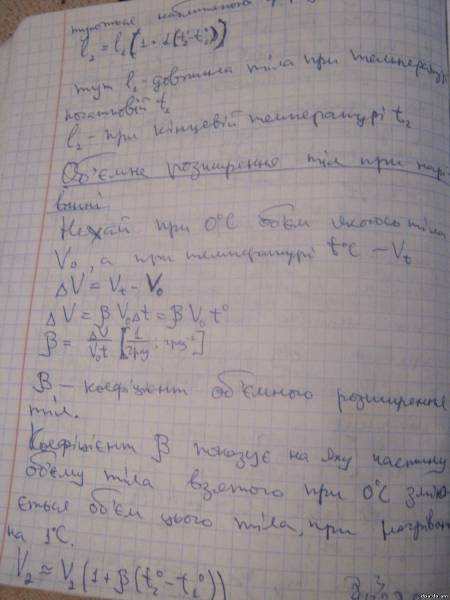 ється наближеною
l₂ = l₁(1 + α(t₂° - t₁°))
тут l₁ - довжина тіла при температурі
початковій t₁
l₂ - при кінцевій температурі t₂
Об'ємне розширення тіл при нагрі-
ванні.
Нехай при 0°C об'єм якогось тіла
V₀, а при температурі t°C - Vt
ΔV = Vt - V₀
ΔV = β V₀Δt = β V₀ t°
β = ΔV/V₀t [1/град; град⁻¹]
β - коефіцієнт об'ємного розширення
тіл.
Коефіцієнт β показує на яку частину
об'єму тіла взятого при 0°C зміню-
ється об'єм цього тіла, при нагріван
на 1°C.
V₂ ≈ V₁(1 + β(t₂° - t₁°))
dpa.do.am